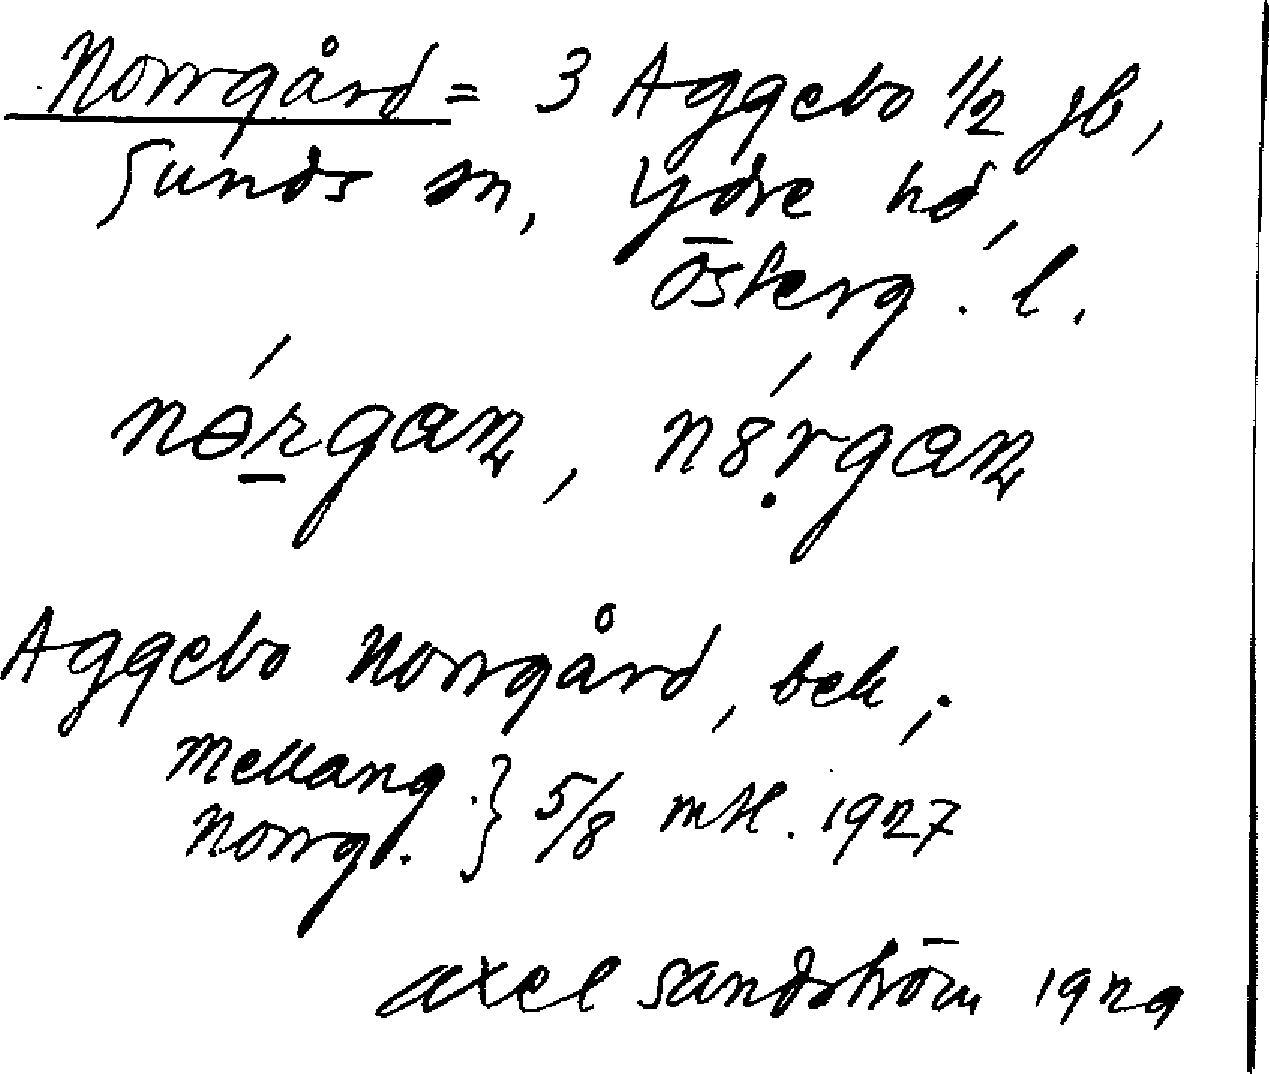 Norrgård = 3 Aggebo 1/2 jb,
Sunds sn, Ydre hd,
Österg. l.
nɵ́rgan, n8́rgan
Aggebo Norrgård, bek,.
Mellang.
Norrg. } 5/8 mtl. 1927
Axel Sandström 1929